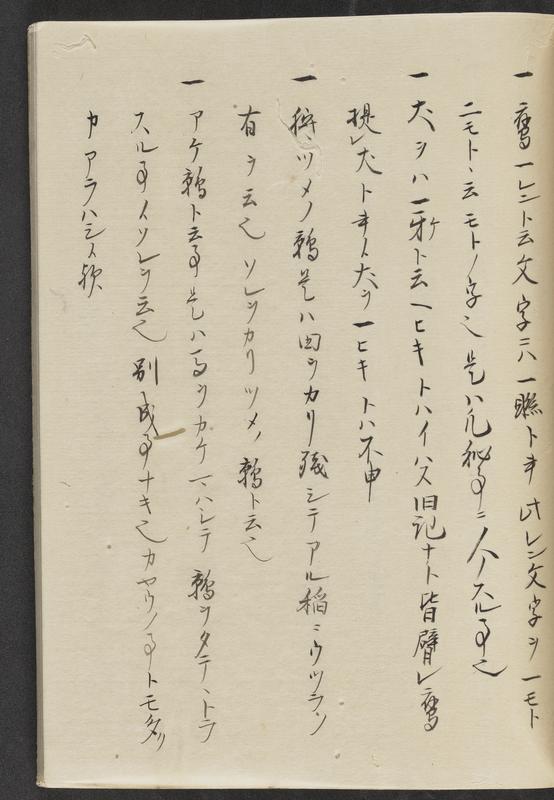 一 鷹一レント云文字ニハ一聯トキ此レン文字ヲ一モト
ニモトヽ云モトノ字也是ハ凡秘事ニ人ノスル事也
一 犬ヲハ一牙ト云一ヒキトハイハス旧記ナト皆臂レ鷹
提レ犬トキト犬ヲ一ヒキトハ不申
一 ツメノ鶉是ハ田ヲカリ残シテアル稲ニウツラノ
有ヲ云也ソレヲカリツメノ鶉ト云也
一 アケ鶉ト云事是ハ馬ヲカケマハシテ鶉ヲタテヽトラ
スル事ソレヲ云也別成事ナキ也カヤウノ事トモ
カアラハシト歟